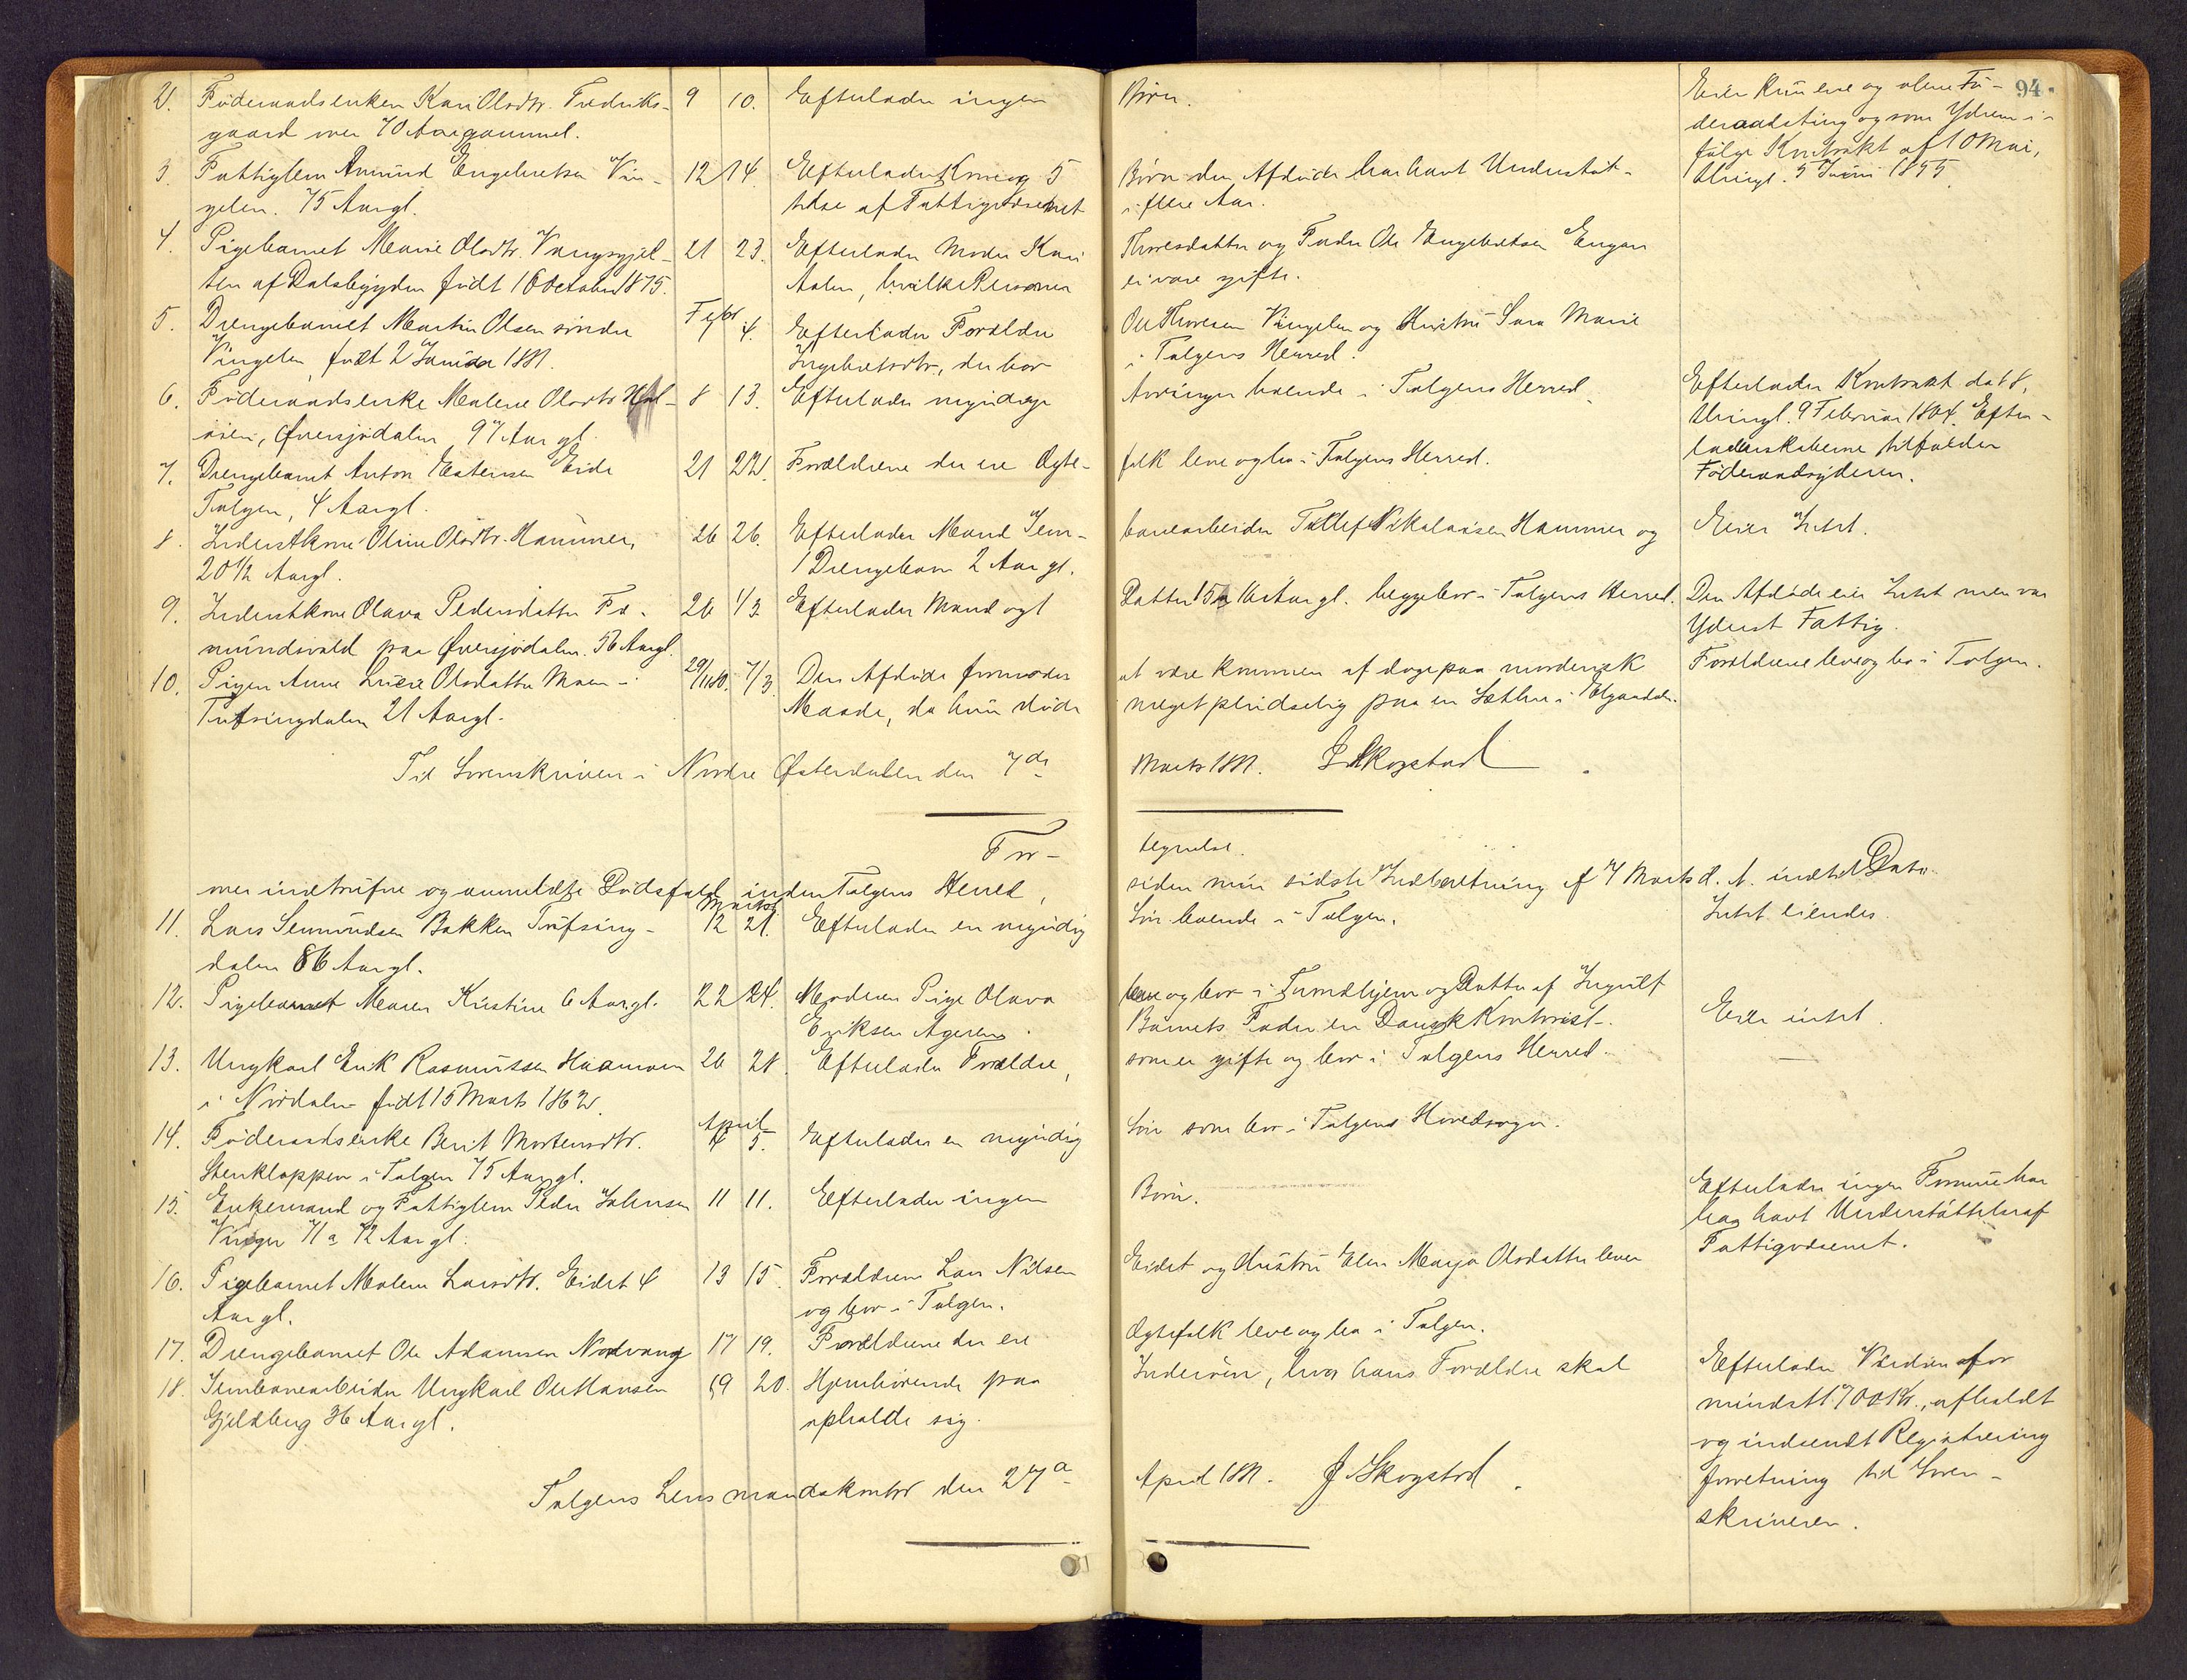 94.
2. Föderaadsenken Kari Olsdtr. Fredriks- 9 10. Efterlader ingen Börn. Eier kun ene og alene Fö-
gaard over 70 Aar gammel. deraadsting og som Yderen i-
fölge Kontrakt af 10 Mai,
3. Fattiglem Amund Engebretsen Vin- 12 14. Efterlader Kone og 5 Börn den Afdöde har havt Understöt- thingl. 5 Juni 1855.
gelen. 75 Aar gl. telse af Fattigvæsenet i flere Aar.
4. Pigebarnet Marie Olsdtr. Vangsgjel- 21 23. Efterlader Moder Kari Thoresdatter og Fader Ole Engebretsen Engan
ten af Dalsbygden födt 16 October 1875. Aalen, hvilke Personer ei vare gifte.
5. Drengebarnet Martin Olsen söndre Febr 4. Efterlader Forældre Ole Thoresen Vingelen og Hustru Sara Marie
Vingelen, födt 2 Januar 1881. Ingebretsdtr., der bor i Tolgens Herred.
6. Föderaadsenke Malene Olsdtr. Hol- 8 13. Efterlader myndige Arvinger boende i Tolgens Herred. Efterlader Kontrakt dat 8,
öien, Øversjödalen 97 Aar gl. thingl. 9 Februar 1864. Efter-
ladenskaberne tilfalder
7. Drengebarnet Anton Estensen Eide 21 22. Forældrene der ere Ægte- folk leve og bo i Tolgens Herred. Föderaadsyderen.
Tolgen, 4 Aar gl.
8. Inderstkone Oline Olsdtr. Hammer, 26 26. Efterlader Mand Jern- banearbeider Nikolaisen Hammer og Eier Intet.
20 1/2 Aar gl. 1 Drengebarn 2 Aar gl.
9. Inderstkone Olava Pedersdatter Fæ- 26 1/3. Efterlader Mand og 1 Datter 15 a 16 Aar gl. begge bor i Tolgens Herred. Den Afdöde eier Intet men var
mundsvold paa Øversjödalen. 56 Aar gl. Yderst Fattig.
10. Pigen Anne Olsdatter Moen i 29/11 80. 7/3. Den Afdöde formodes at være kommen af dage paa morderisk Forældrene leve og bo i Tolgen.
Tufsingdalen 21 Aar gl. Maade, da hun döde meget pludselig paa en Sætter i Elgaadal.
Til Sorenskriveren i Nordre Østerdalen den 7de Marts 1881. J. Skogstad.
For- tegnelse
over indtrufne og anmeldte Dödsfald inden Tolgens Herred, siden min sidste Indberetning af 7 Marts d. A. indtil Dato.
11. Lars Semmundsen Bakken Tufsing- Marts 12 21. Efterlader en myndig Sön boende i Tolgen. Intet eiendes.
dalen 86 Aar gl.
12. Pigebarnet Maren Kristine 6 Aar gl. 22 24. Moderen Pige Olava leve og bor i Trondhjem og Datter af Ingulf
Eriksen Ageren. Barnets Fader en Dansk Kontorist. Eier intet.
13. Ungkarl Erik Rasmussen Haamoen 26 28. Efterlader Forældre, som er gifte og bor i Tolgens Herred. —
i Nordalen födt 15 Marts 1862.
14. Föderaadsenke Berit Mortensdtr. April 4 5. Efterlader en myndig Sön som bor i Tolgens Hovedsogn.
Stenkloppen i Tolgen 75 Aar gl.
15. Enkemand og Fattiglem Peder Johnsen 11 11. Efterlader ingen Börn. Efterlader ingen Formue har
71 a 72 Aar gl. havt Understöttelse af
Fattigvæsenet.
16. Pigebarnet Malene Larsdtr. Eidet 4 13 15. Forældrene Lars Nilsen Eidet og Hustru Elen Marja Olsdatter lever
Aar gl. og bor i Tolgen.
17. Drengebarnet Ole Adamsen Nordvang 17 19. Forældrene der ere Ægtefolk leve og bo i Tolgen.
18. Jernbanearbeider Ungkarl Ole Hansen 19 20. Hjemhörende paa Inderöen, hvor hans Forældre skal Efterlader Værdier for
Gjeldberg 36 Aar gl. opholde sig. mindst 1700 Kr., afholdt
og indsendt Registrering
forretning til Soren-
skriveren.
Tolgens Lensmandskontor den 27de April 1881. J. Skogstad.